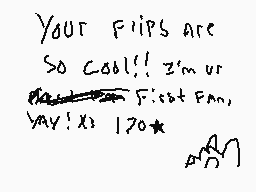 Your Flips Are
So Cool!! I'm ur
First Fan,
YAY! X3 170★